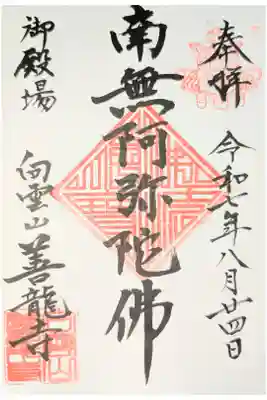 奉拝
令和七年八月廿四日
南無阿弥陀佛
御殿場
向雲山善龍寺